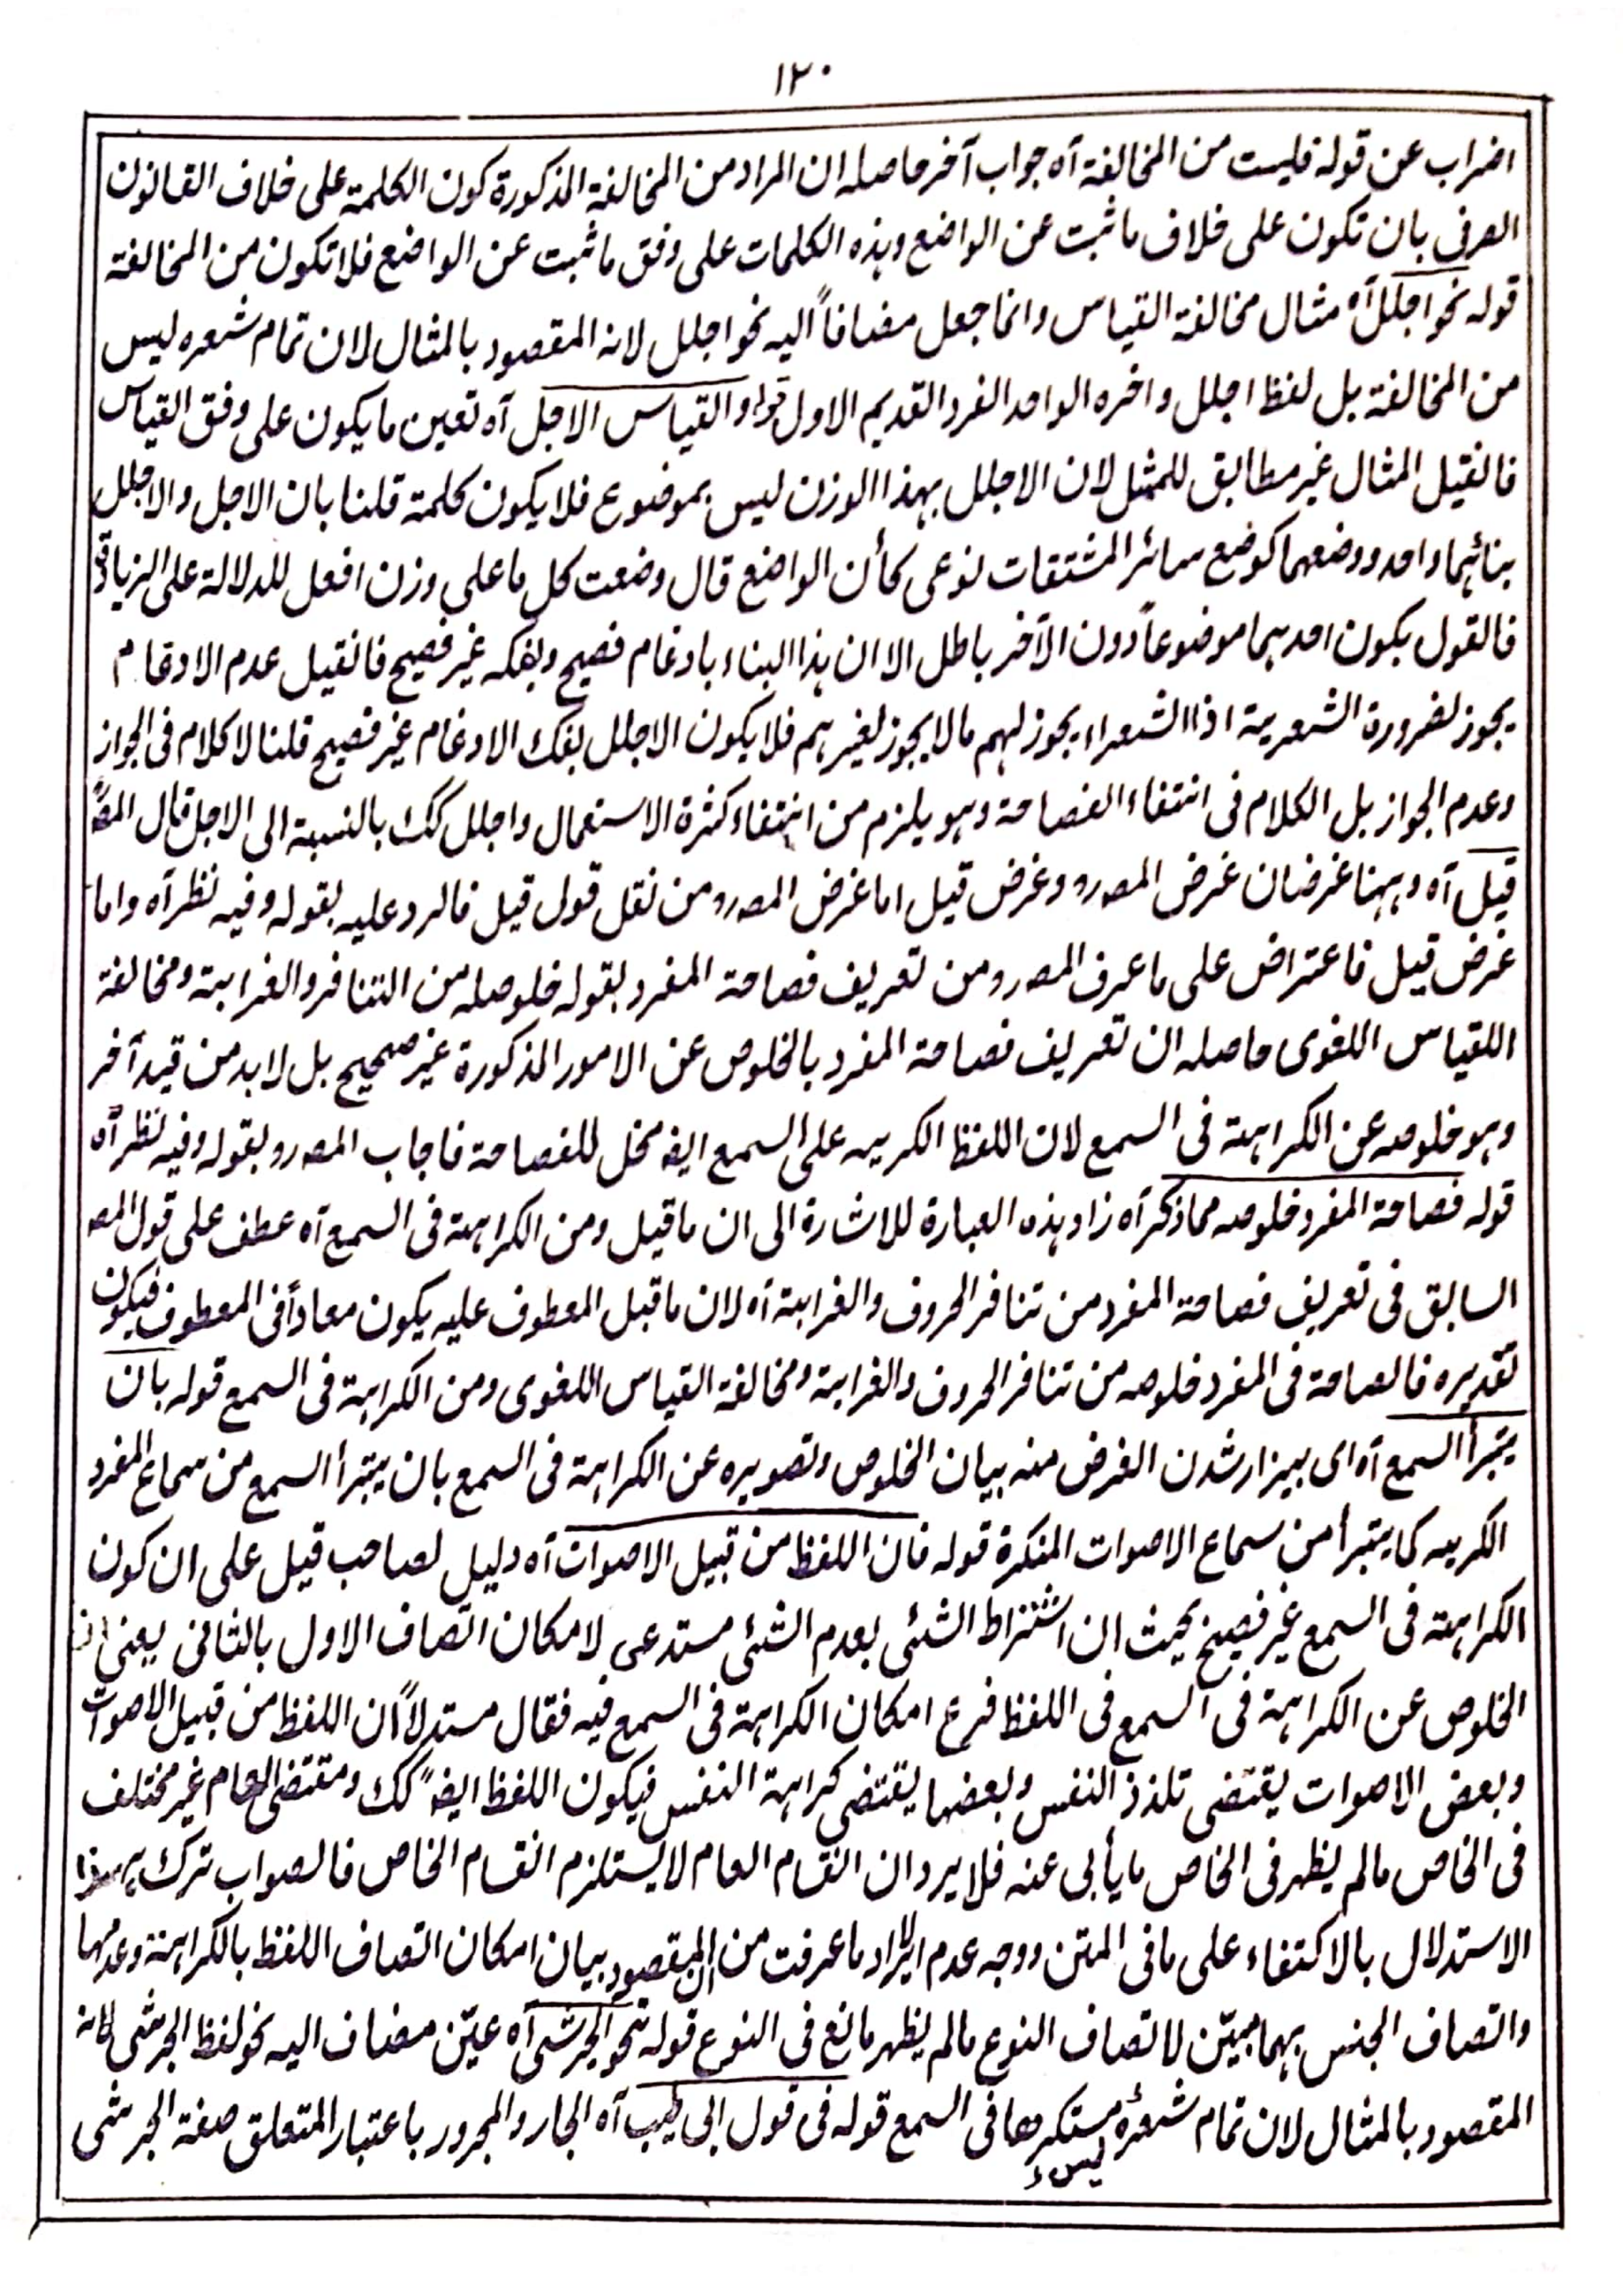 ١٢٠
اضراب عن قوله فليست من المخالفة آه جواب آخر حاصله ان المراد من المخالفة المذكورة كون الكلمة على خلاف القانون
العرفى بان تكون على خلاف ما ثبت عن الواضع وهذه الكلمات على وفق ما ثبت عن الواضع فلا تكون من المخالفة
قوله نحو اجلل آه مثال مخالفة القياس وانما جعل مضافاً اليه نحو اجلل لانه المقصود بالمثال لان تمام شعره ليس
من المخالفة بل لفظ اجلل واخره الواحد الفرد القديم الاول قوله والقياس الاجل آه تعين ما يكون على وفق القياس
فانقيل المثال غير مطابق للممثل لان الاجلل بهذا الوزن ليس بموضوع فلا يكون كلمة قلنا بان الاجل والاجلل
بنائهما واحد ووضعهما كوضع سائر المشتقات نوعى كأن الواضع قال وضعت كل ما على وزن افعل للدلالة على الزيادة
فالقول بكون احدهما موضوعاً دون الآخر باطل الا ان هذا البناء بادغام فصيح وبفكه غير فصيح فانقيل عدم الادغام
يجوز لضرورة الشعرية اذا الشعراء يجوز لهم مالا يجوز لغيرهم فلا يكون الاجلل بفك الادغام غير فصيح قلنا لا كلام فى الجواز
وعدم الجواز بل الكلام فى انتفاء الفصاحة وهو يلزم من انتفاء كثرة الاستعمال واجلل كك بالنسبة الى الاجل قال المصؒ
قيل آه وههنا غرضان غرض المصرو وغرض قيل اما غرض المصرو من نقل قول قيل فالرد عليه بقوله وفيه نظر آه واما
غرض قيل فاعتراض على ما عرف المصرو من تعريف فصاحة المفرد بقوله خلوصله من التنافر والغرابة ومخالفة
اللقياس اللغوى حاصله ان تعريف فصاحة المفرد بالخلوص عن الامور المذكورة غير صحيح بل لابد من قيد آخر
وهو خلوصه عن الكراهة فى السمع لان اللفظ الكريه على السمع ايضہ مخل للفصاحة فاجاب المصرو بقوله وفيه نظر آه
قوله فصاحة المفرد خلوصه مما ذكر آه زاد هذه العبارة للاشارة الى ان ما قيل ومن الكراهة فى السمع آه عطف على قول المصہ
السابق فى تعريف فصاحة المفرد من تنافر الحروف والغرابة آه لان ما قبل المعطوف عليه يكون معاداً فى المعطوف فيكون
تقديره فالفصاحة فى المفرد خلوصه من تنافر الحروف والغرابة ومخالفة القياس اللغوى ومن الكراهة فى السمع قوله بان
يتبرأ السمع آه اى بيزار شدن الغرض منه بيان الخلوص وتصويره عن الكراهة فى السمع بان يتبرأ السمع من سماع المفرد
الكريه كما يتبرأ من سماع الاصوات المنكرة قوله فان اللفظ من قبيل الاصوات آه دليل لصاحب قيل على ان كون
الكراهة فى السمع غير فصيح بحيث ان اشتراط الشئى بعدم الشئى مستدعى لامكان اتصاف الاول بالثانى يعنى ان
الخلوص عن الكراهة فى السمع فى اللفظ فرع امكان الكراهة فى السمع فيه فقال مستدلاً ان اللفظ من قبيل الاصوات
وبعض الاصوات يقتضى تلذذ النفس وبعضها يقتضى كراهة النفس فيكون اللفظ ايضہً كك ومقتضى العام غير مختلف
فى الخاص مالم يظهر فى الخاص ما يأبى عنه فلا يرد ان انقسام العام لا يستلزم انقسام الخاص فالصواب ترك هذا
الاستدلال بالاكتفاء على ما فى المتن ووجه عدم الايراد ما عرفت من ان المقصود بيان امكان اتصاف اللفظ بالكراهة وعدمها
واتصاف الجنس بهما مبيّن لاتصاف النوع مالم يظهر مانع فى النوع قوله نحو الجرشى آه عيّن مضاف اليه نحو لفظ الجرشى لانه
المقصود بالمثال لان تمام شعره ليس مستكرها فى السمع قوله فى قول ابى طيب آه الجار والمجرور باعتبار المتعلق صفة الجرشى